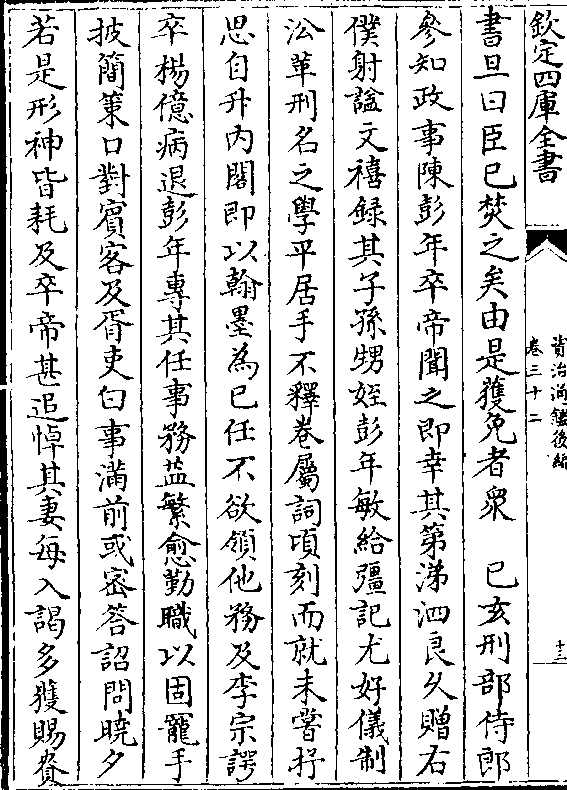 欽定四庫全書
資治通鑑後編
卷三十二
十三
書旦曰臣已焚之矣由是獲免者衆　己亥刑部侍郎
參知政事陳彭年卒帝聞之即幸其第涕泗良久贈右
僕射諡文禧録其子孫甥姪彭年敏給彊記尤好儀制
沿革刑名之學平居手不釋卷屬詞頃刻而就未嘗抒
思自升內閣即以翰墨為已任不欲領他務及李宗諤
卒楊億病退彭年專其任事務益繁愈勤職以固寵手
披簡策口對賓客及胥吏白事滿前或密答詔問曉夕
若是形神皆耗及卒帝甚追悼其妻每入謁多獲賜賚